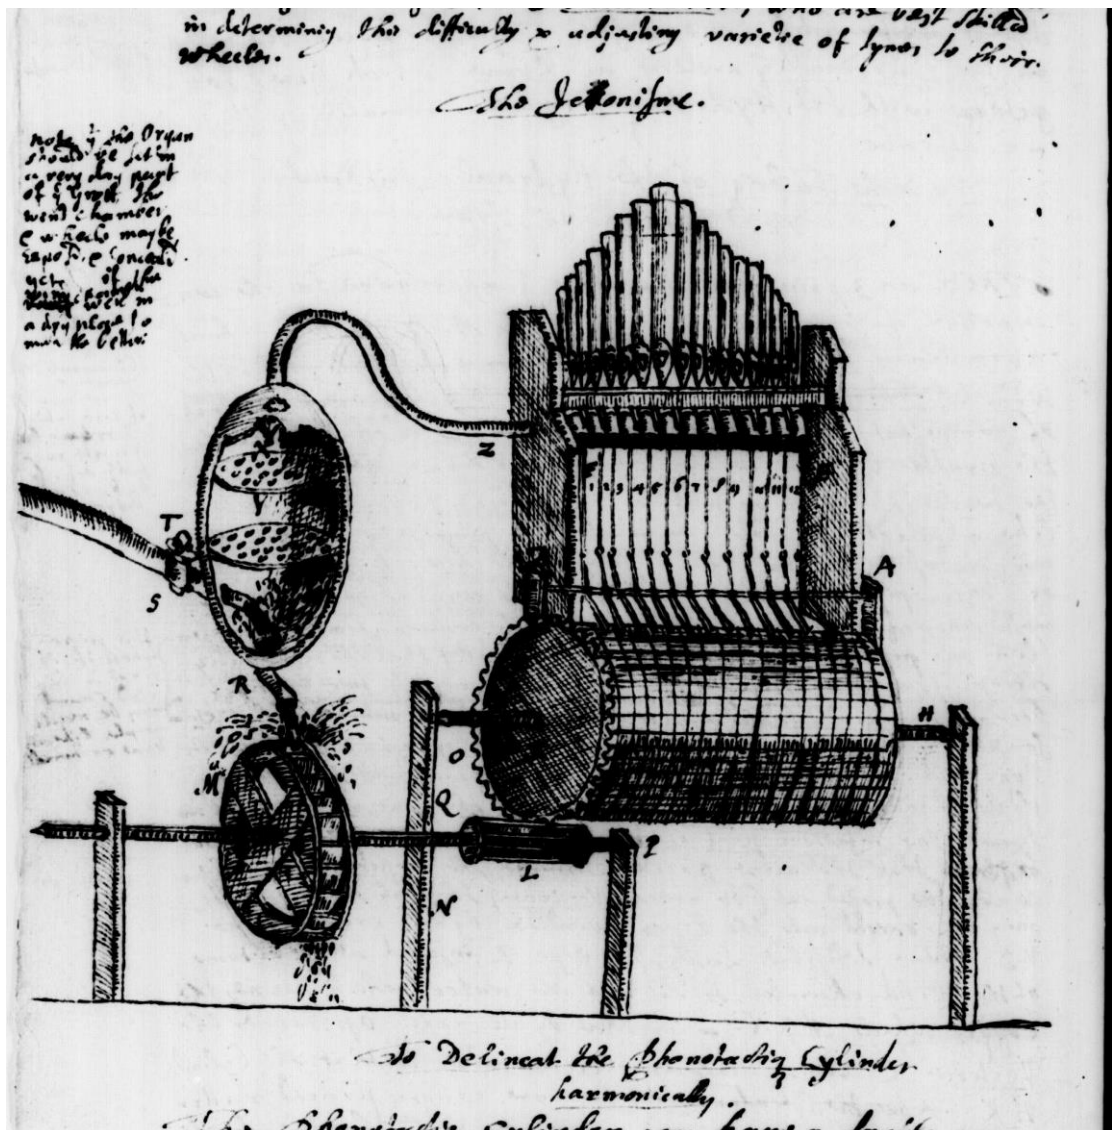 who are best skilled
in determining this difficulty & adjusting varietie of tynes to their
wheeles.
The Iconisme.
note yt the Organ
should be set in
a very dry part
of ye Grott. The
wind chamber
& wheele may be
& conceald
yett if the
were in
a dry place
the better
Z
X
Y
T
S
R
M
1 2 3 4 5 6 7 8 9 10 11 12
A
H
O
Q
L
P
N
To Delineat the Phonotactiq Cylinder
harmonically.
The Phonotactic Cylinder